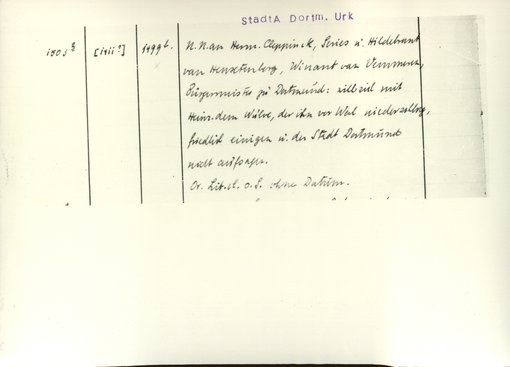 StadtA Dortm. Urk
1499 b.
N. N. an Herm. Cleppinck, Series u. Hildebrant
van Henxtenberg, Winant van Vemmeren,
Bürgermeister zu Dortmund: will mit
Heinr. dem Wülve, der ihn vor Werl
friedlich einigen u. der Stadt Dortmund
nicht aufsagen.
Or. Lit. cl. o. S. ohne Datum.